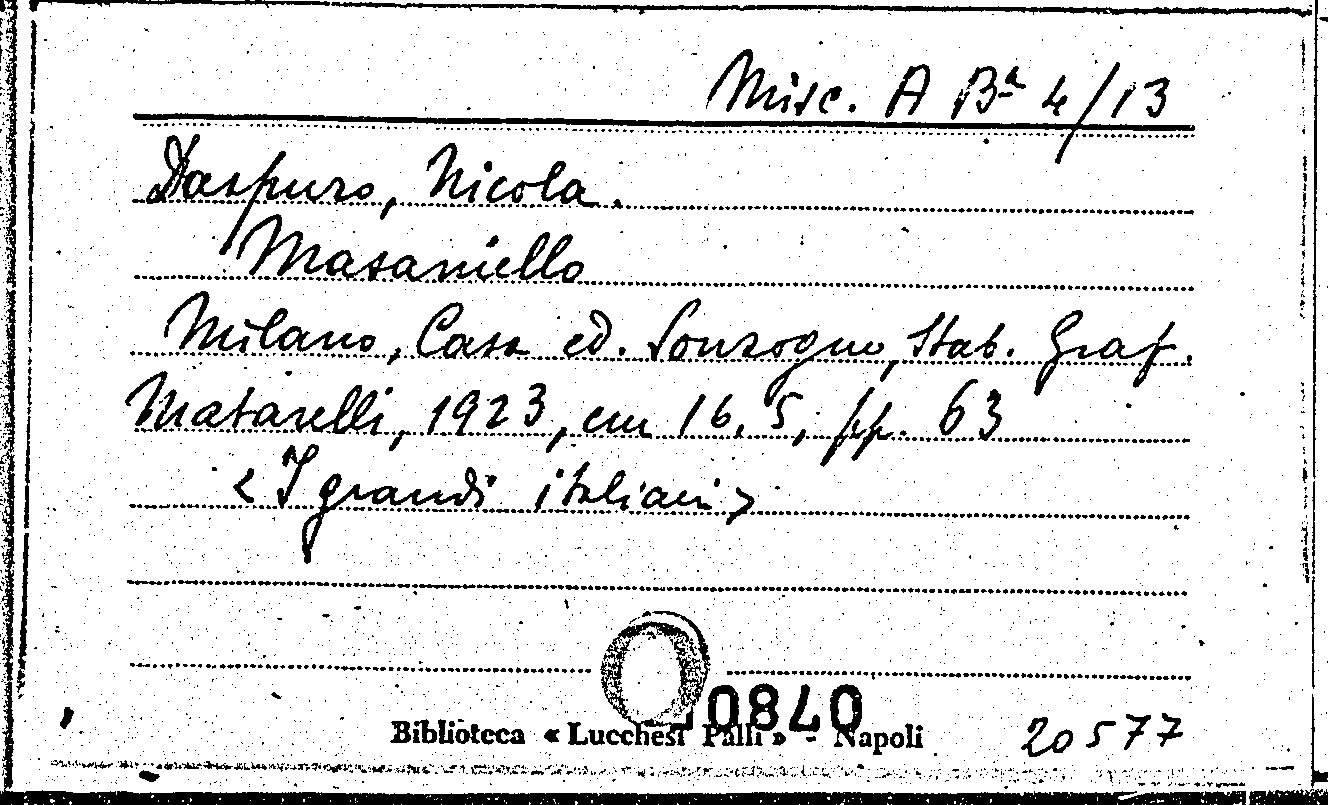 Misc. A Bª 4/13
Daspuro, Nicola.
Masaniello
Milano, Casa ed. Sonzogno, Stab. Graf.
Matarelli, 1923, cm 16,5, pp. 63
<I grandi italiani>
Biblioteca « Lucchesi Palli » - Napoli
20577